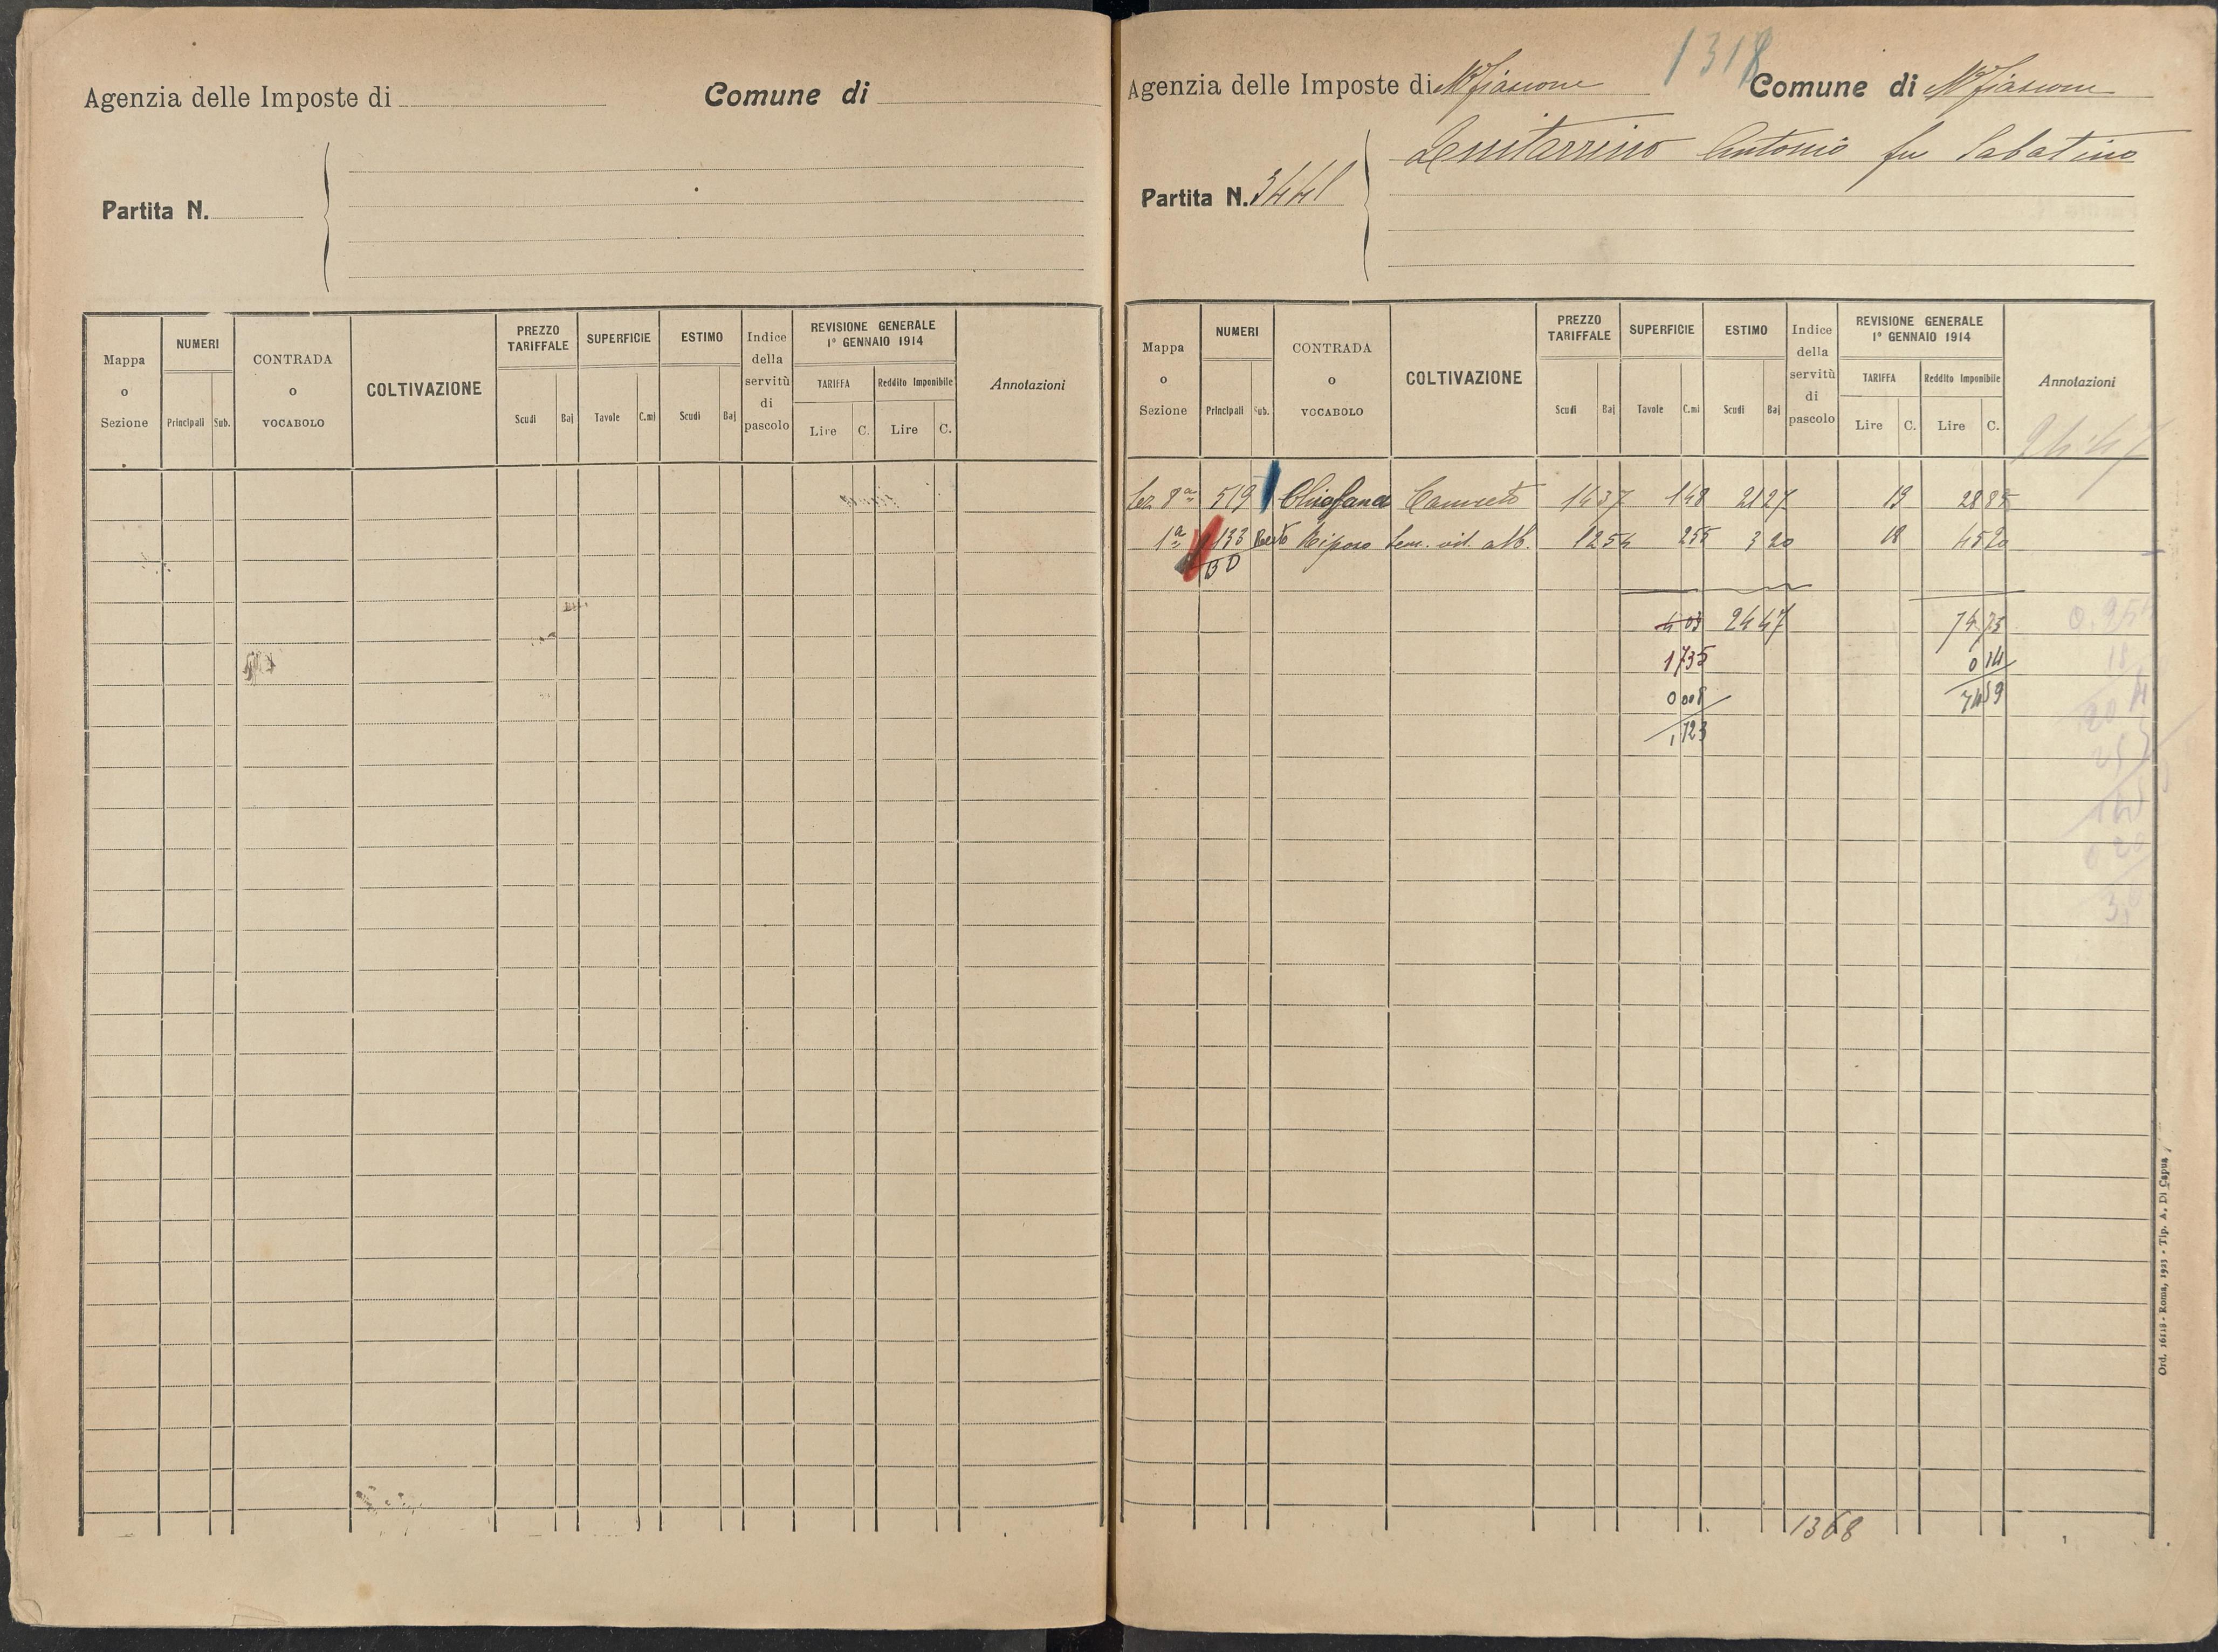 Agenzia delle Imposte di
Comune di
Partita N.
Mappa o Sezione
NUMERI
Principali
Sub.
CONTRADA o VOCABOLO
COLTIVAZIONE
PREZZO TARIFFALE
Scudi
Baj
SUPERFICIE
Tavole
C.mi
ESTIMO
Scudi
Baj
Indice della servitù di pascolo
REVISIONE GENERALE
1° GENNAIO 1914
TARIFFA
Lire
C.
Reddito Imponibile
Lire
C.
Annotazioni
1318
Agenzia delle Imposte di Mfiascone
Comune di Mfiascone
Antonio fu Sabatino
Partita N. 3441
Mappa o Sezione
NUMERI
Principali
Sub.
CONTRADA o VOCABOLO
COLTIVAZIONE
PREZZO TARIFFALE
Scudi
Baj
SUPERFICIE
Tavole
C.mi
ESTIMO
Scudi
Baj
Indice della servitù di pascolo
REVISIONE GENERALE
1° GENNAIO 1914
TARIFFA
Lire
C.
Reddito Imponibile
Lire
C.
Annotazioni
24.47
Sez 8a 519 Canneto 14 37 1 48 21 27 19 28 85
1a 133 Resto Riposo Sem. vit. alb. 12 54 2 55 3 20 18 45 20
4 03 24 47 74 73
1 735 0 14
0 008 74 59
1 723
1368
Ord. 16118 - Roma, 1923 - Tip. A. Di Capua